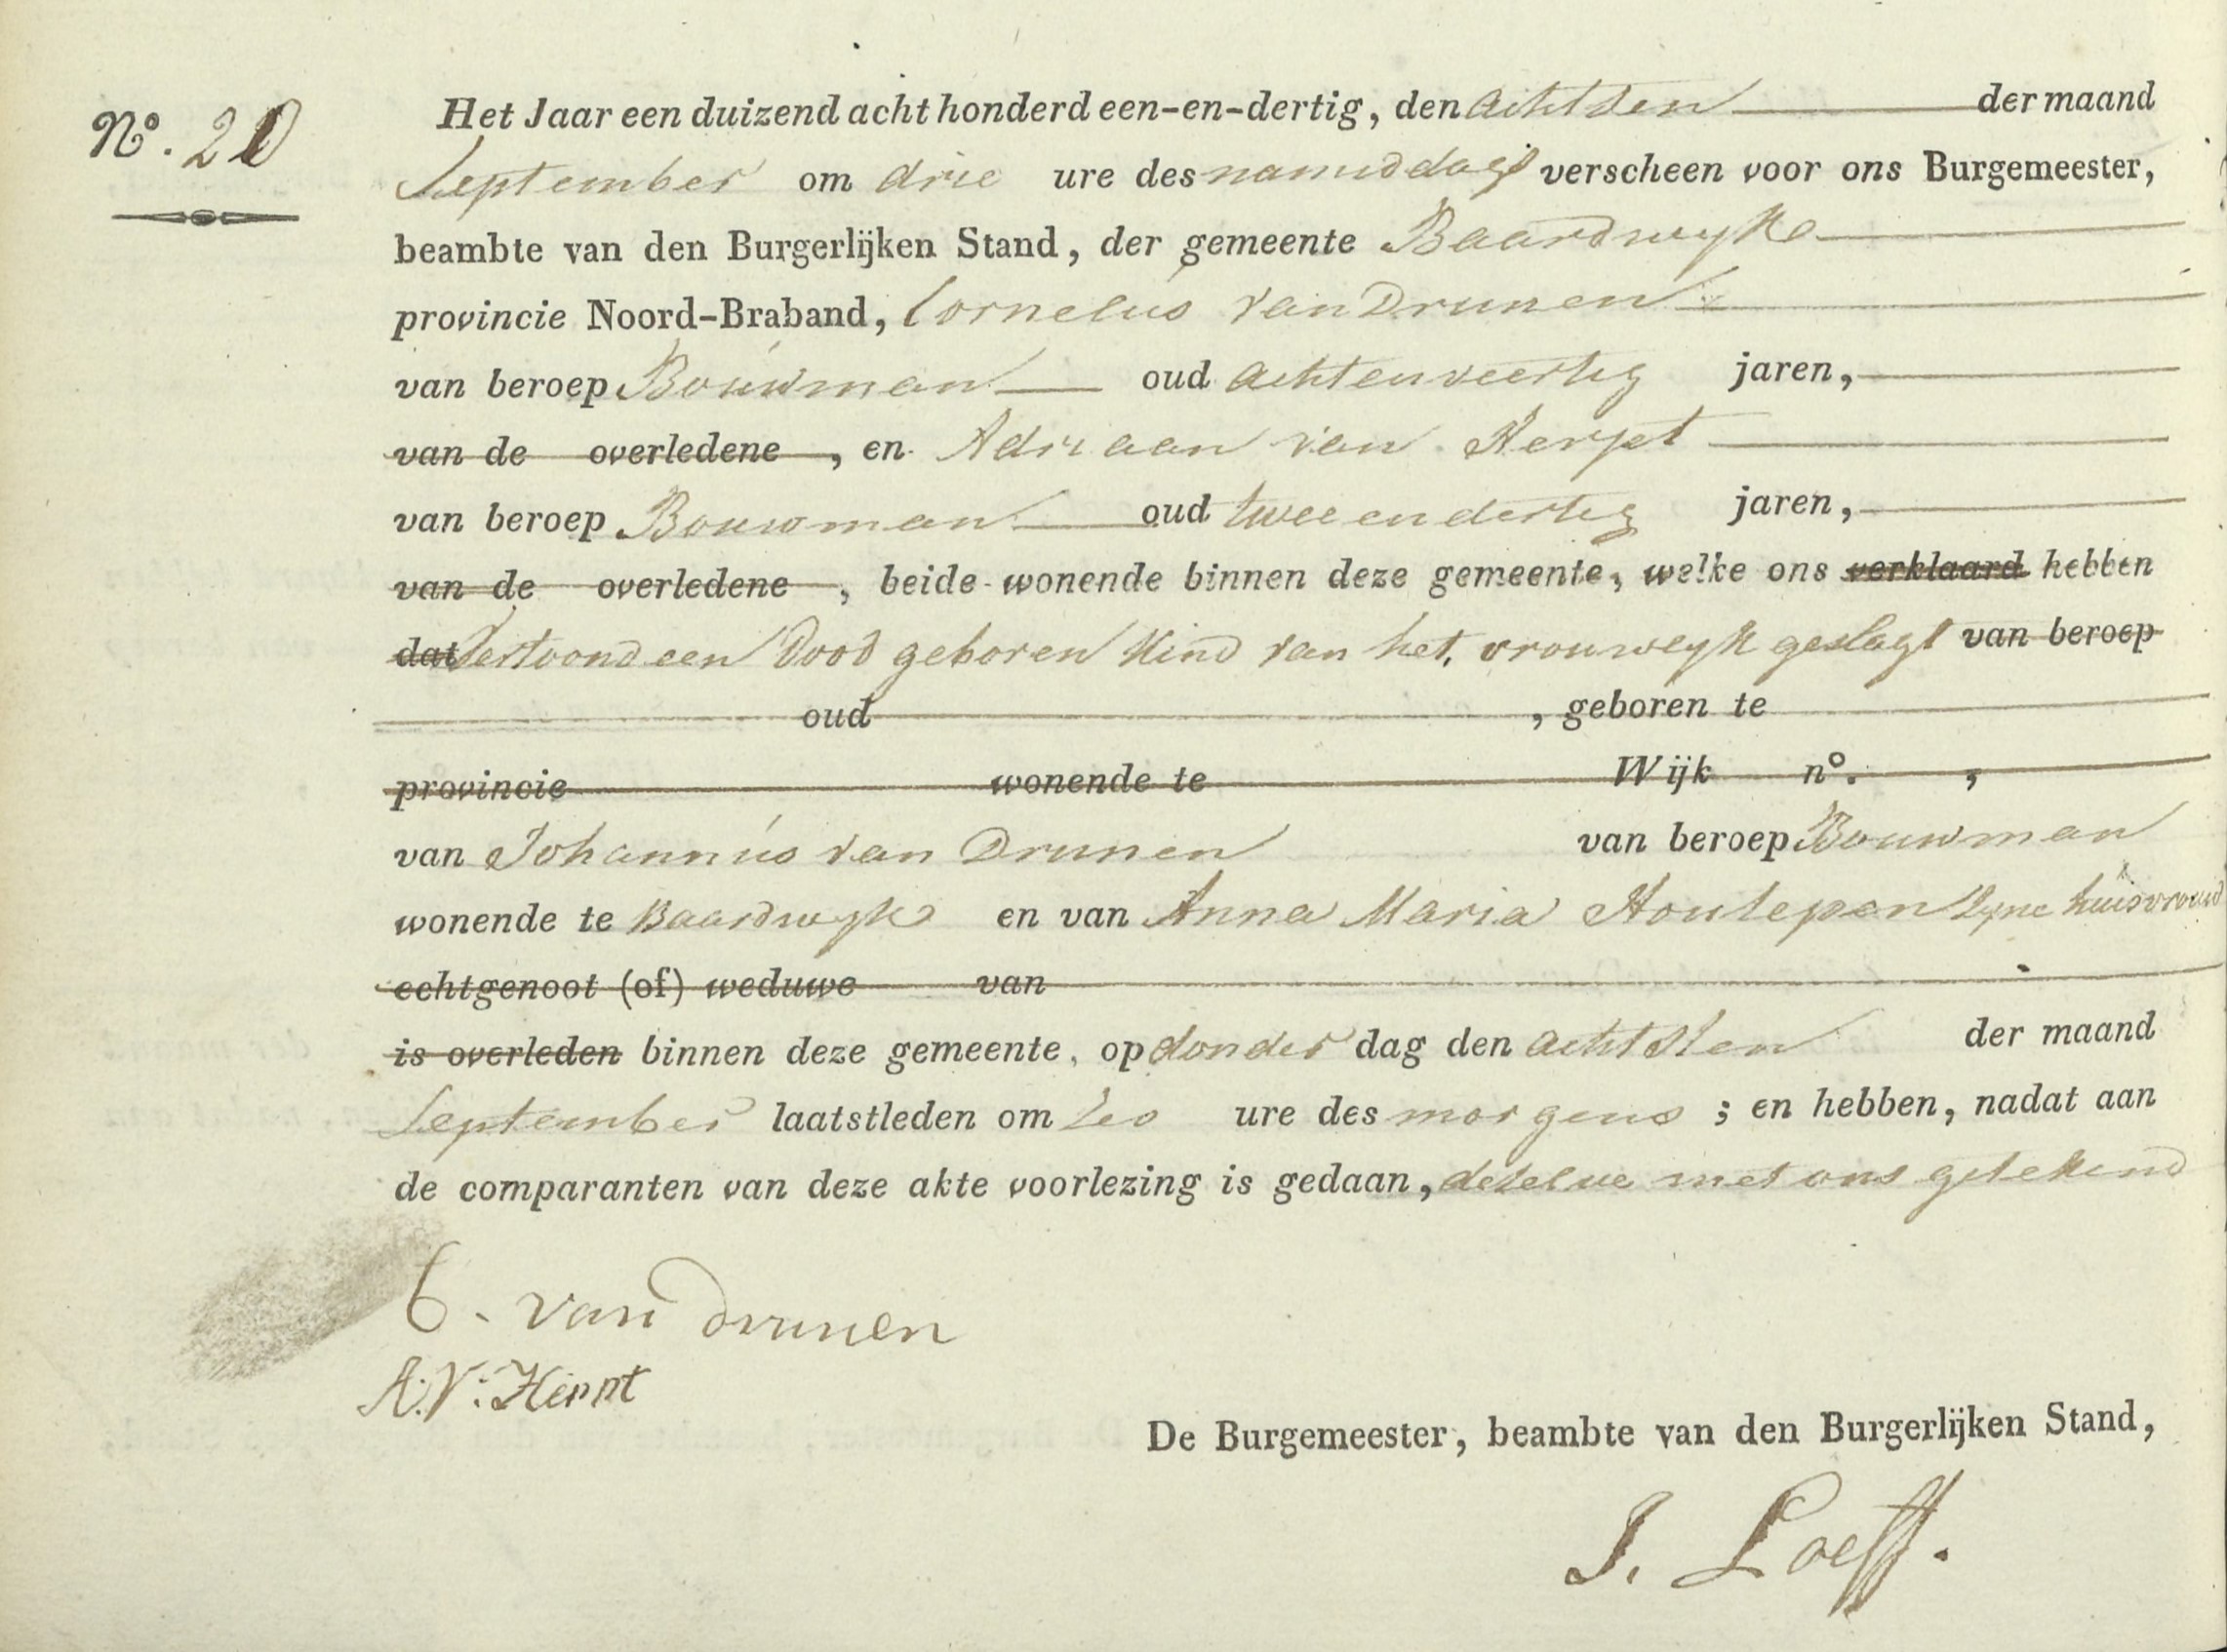 Nº. 20
Het Jaar een duizend acht honderd een-en-dertig, den achtsten der maand
September om drie ure des namiddags verscheen voor ons Burgemeester,
beambte van den Burgerlijken Stand, der gemeente Baardwyk
provincie Noord-Braband, Cornelus van Drunen
van beroep Bouwman oud achtenveertig jaren,
van de overledene, en Adriaan van Herpt
van beroep Bouwman oud tweeendertig jaren,
van de overledene, beide wonende binnen deze gemeente, welke ons verklaard hebben
dat Vertoond een Dood geboren Kind van het vrouweyk geslagt van beroep
oud , geboren te
provincie wonende te Wijk nº. ,
van Johannus van Drunen van beroep Bouwman
wonende te Baardwyk en van Anna Maria Houtepen Zyne huisvrouw
echtgenoot (of) weduwe van
is overleden binnen deze gemeente, op donder dag den achtsten der maand
September laatstleden om ure des morgens ; en hebben, nadat aan
de comparanten van deze akte voorlezing is gedaan, dezelve met ons getekend
C. van Drunen
A. V: Herpt
De Burgemeester, beambte van den Burgerlijken Stand,
J. Loeff.